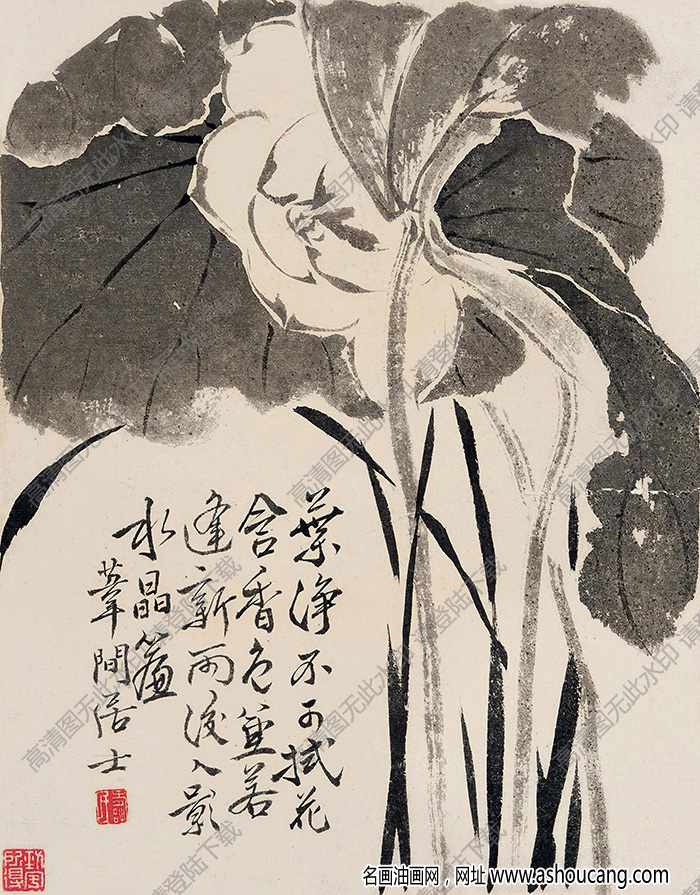 葉淨不可拭花
含香色兼若
逢新雨後人影
水晶簾
葦間居士
名画油画网，网址 www.ashoucang.com
高清图无此水印 请登陆下载